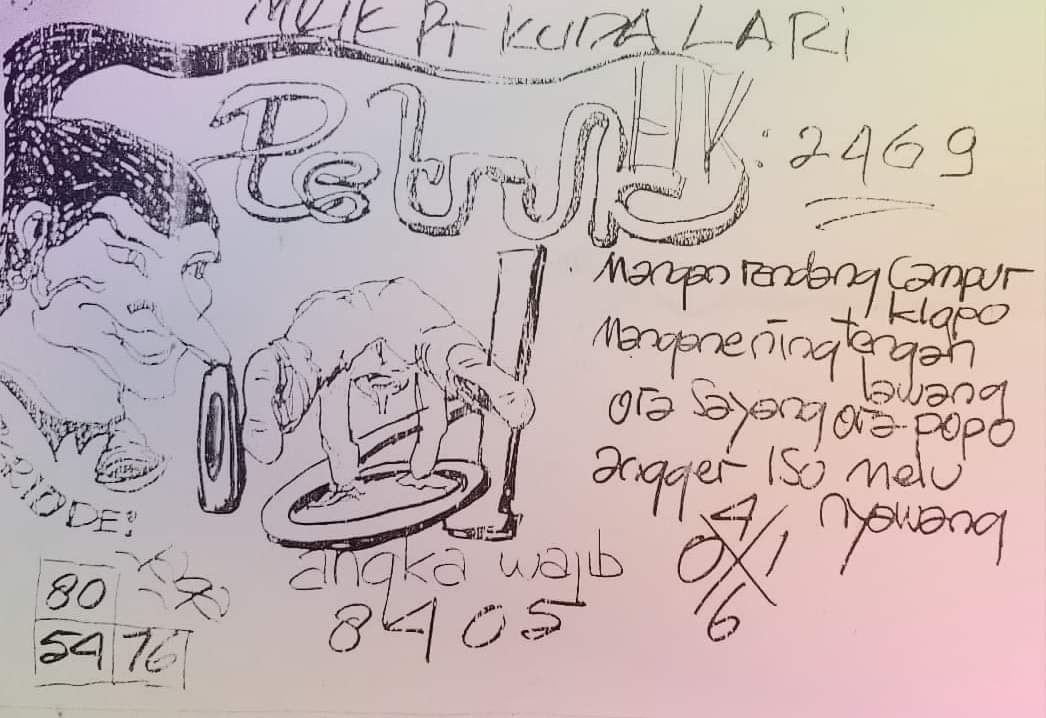 KUDA LARI
Petruk
HK: 2469
Mangan rendang Campur
klapo
Mangane ning tengah
lawang
ora sayang ora popo
angger iso melu
nyawang
RIODE:
4
0 X 1
6
angka wajib
8405
80
54 76